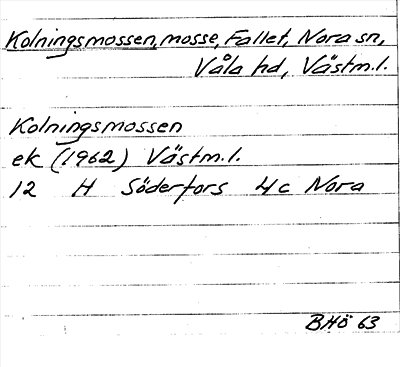 Kolningsmossen, mosse, Fallet, Nora sn,
Våla hd, Västm.l.
Kolningsmossen
ek (1962) Västm.l.
12 H Söderfors 4c Nora
BHö 63